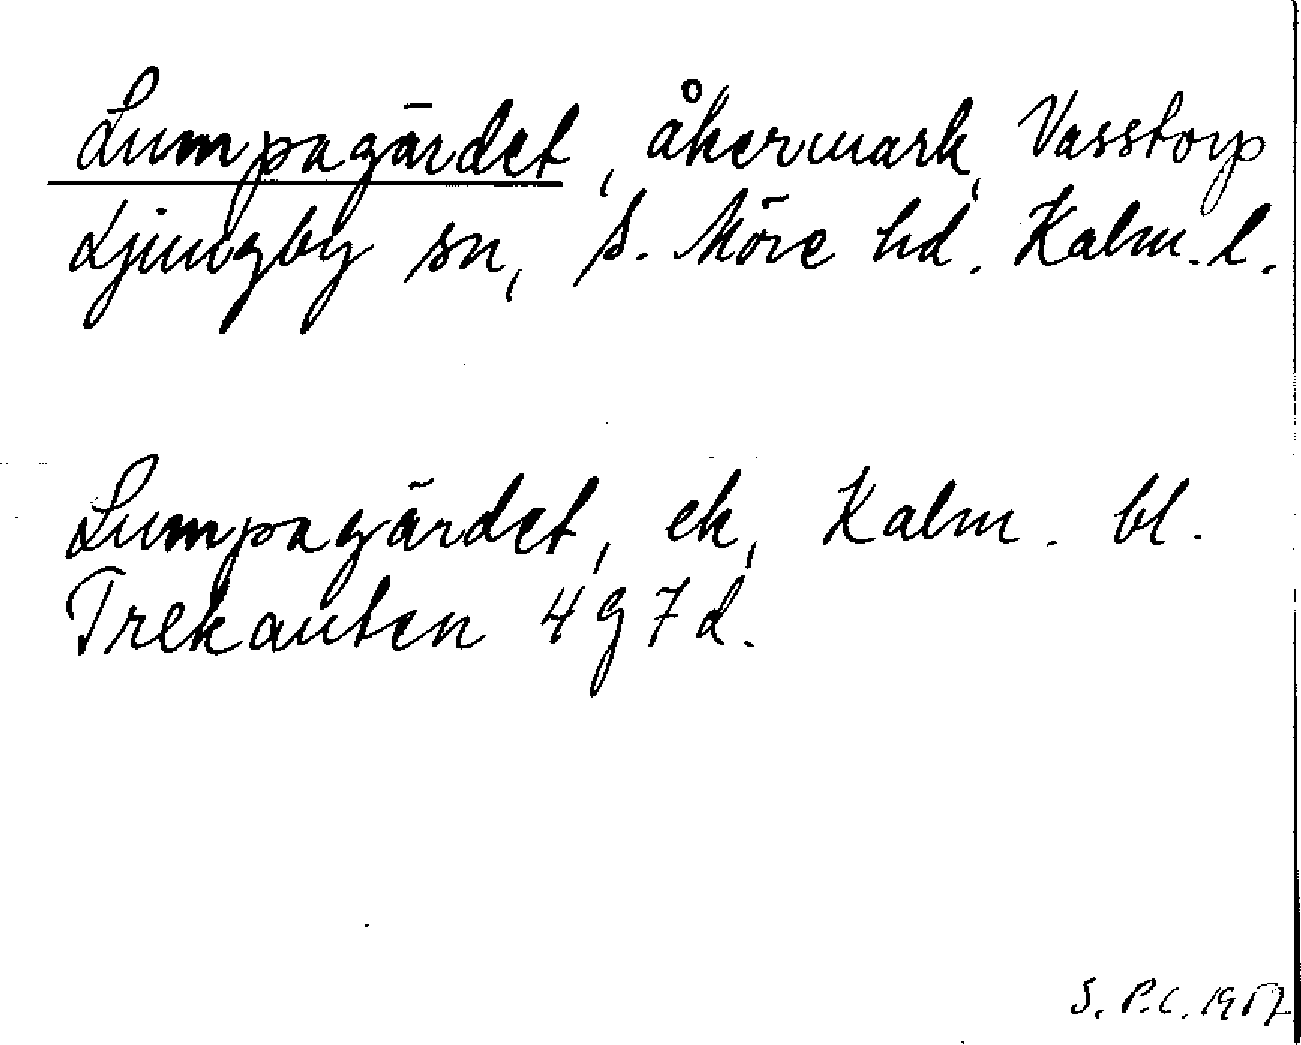 Lumpagärdet, åkermark, Vasstorp
Ljungby sn, S. Möre hd. Kalm. l.
Lumpagärdet, ek, Kalm. bl.
Trekanten 4 g 7 d.
S. P.C. 1957